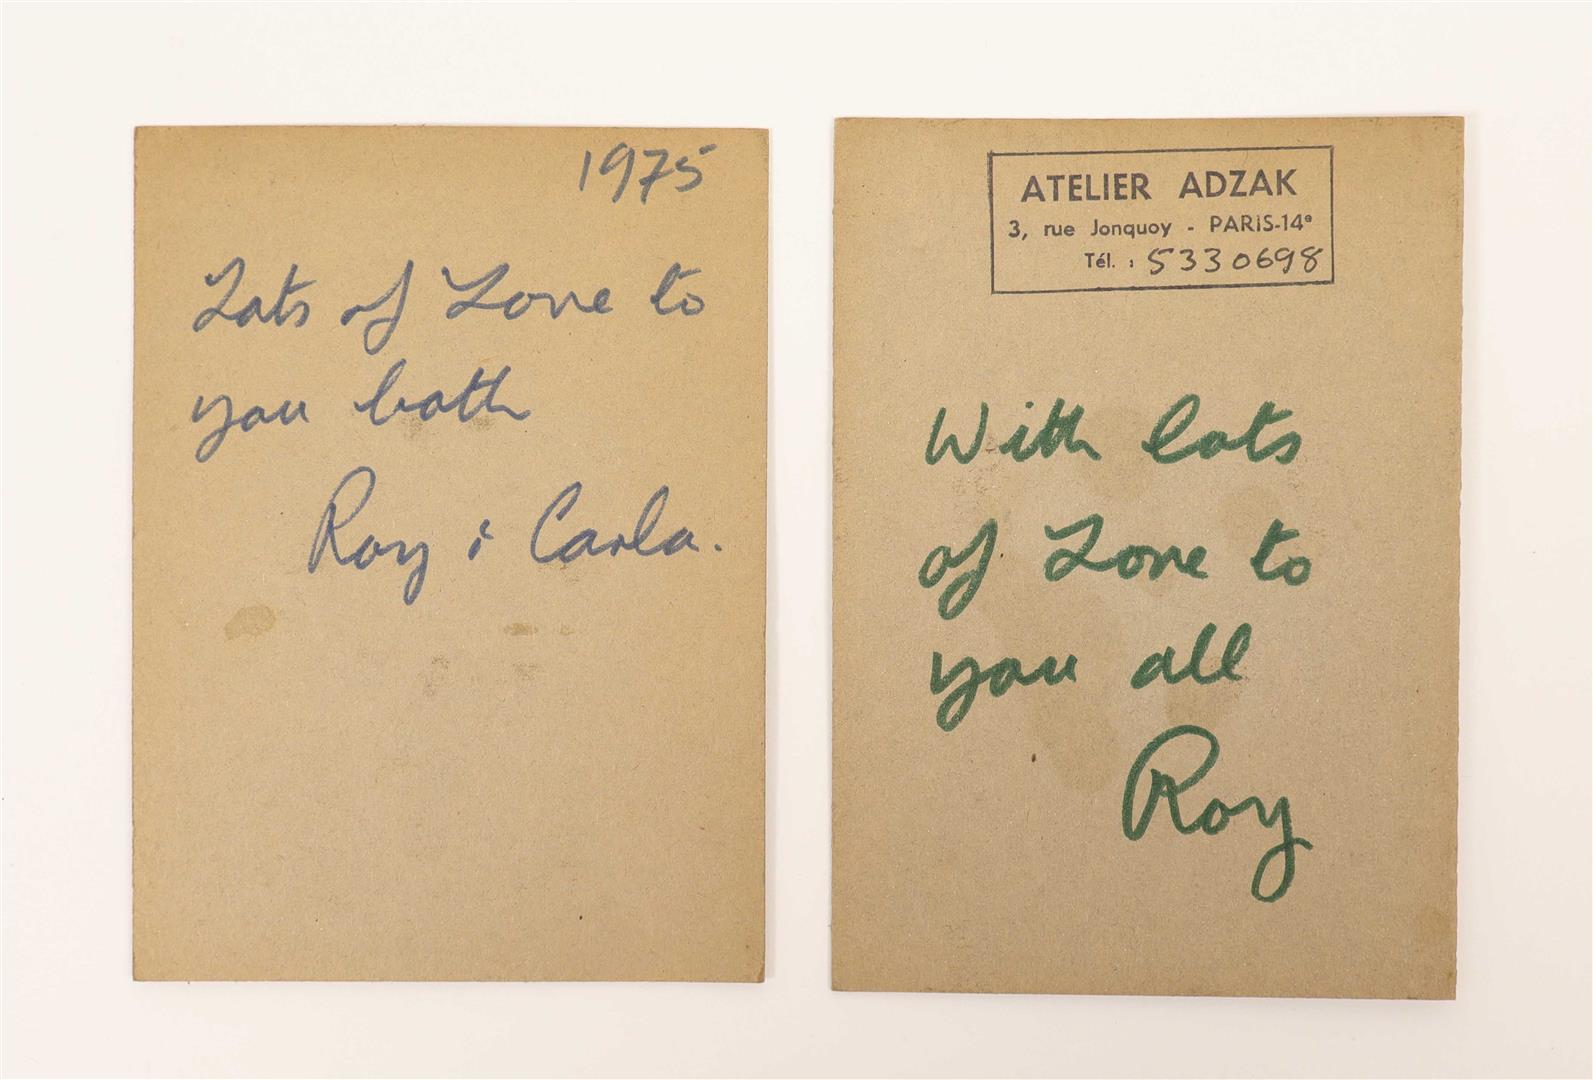 1975
Lots of Love to
you both
Roy & Carla.
ATELIER ADZAK
3, rue Jonquoy - PARIS-14e
Tél. : 5330698
With lots
of Love to
you all
Roy